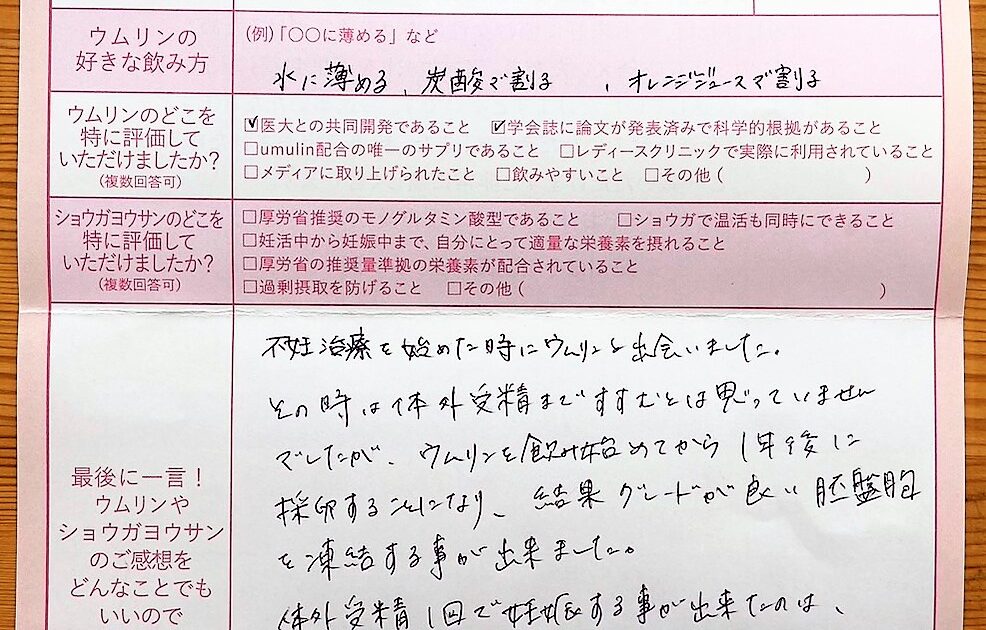 ウムリンの
好きな飲み方
(例)「○○に薄める」など
水に薄める、炭酸で割る、オレンジジュースで割る
ウムリンのどこを
特に評価して
いただけましたか?
(複数回答可)
☑医大との共同開発であること ☑学会誌に論文が発表済みで科学的根拠があること
□umulin配合の唯一のサプリであること □レディースクリニックで実際に利用されていること
□メディアに取り上げられたこと □飲みやすいこと □その他( )
ショウガヨウサンのどこを
特に評価して
いただけましたか?
(複数回答可)
□厚労省推奨のモノグルタミン酸型であること □ショウガで温活も同時にできること
□妊活中から妊娠中まで、自分にとって適量な栄養素を摂れること
□厚労省の推奨量準拠の栄養素が配合されていること
□過剰摂取を防げること □その他( )
最後に一言!
ウムリンや
ショウガヨウサン
のご感想を
どんなことでも
いいので
不妊治療を始めた時にウムリンと出会いました。
その時は体外受精まですすむとは思っていません
でしたが、ウムリンを飲み始めてから1年後に
採卵することになり、結果グレードが良い胚盤胞
を凍結する事が出来ました。
体外受精1回で妊娠する事が出来たのは、